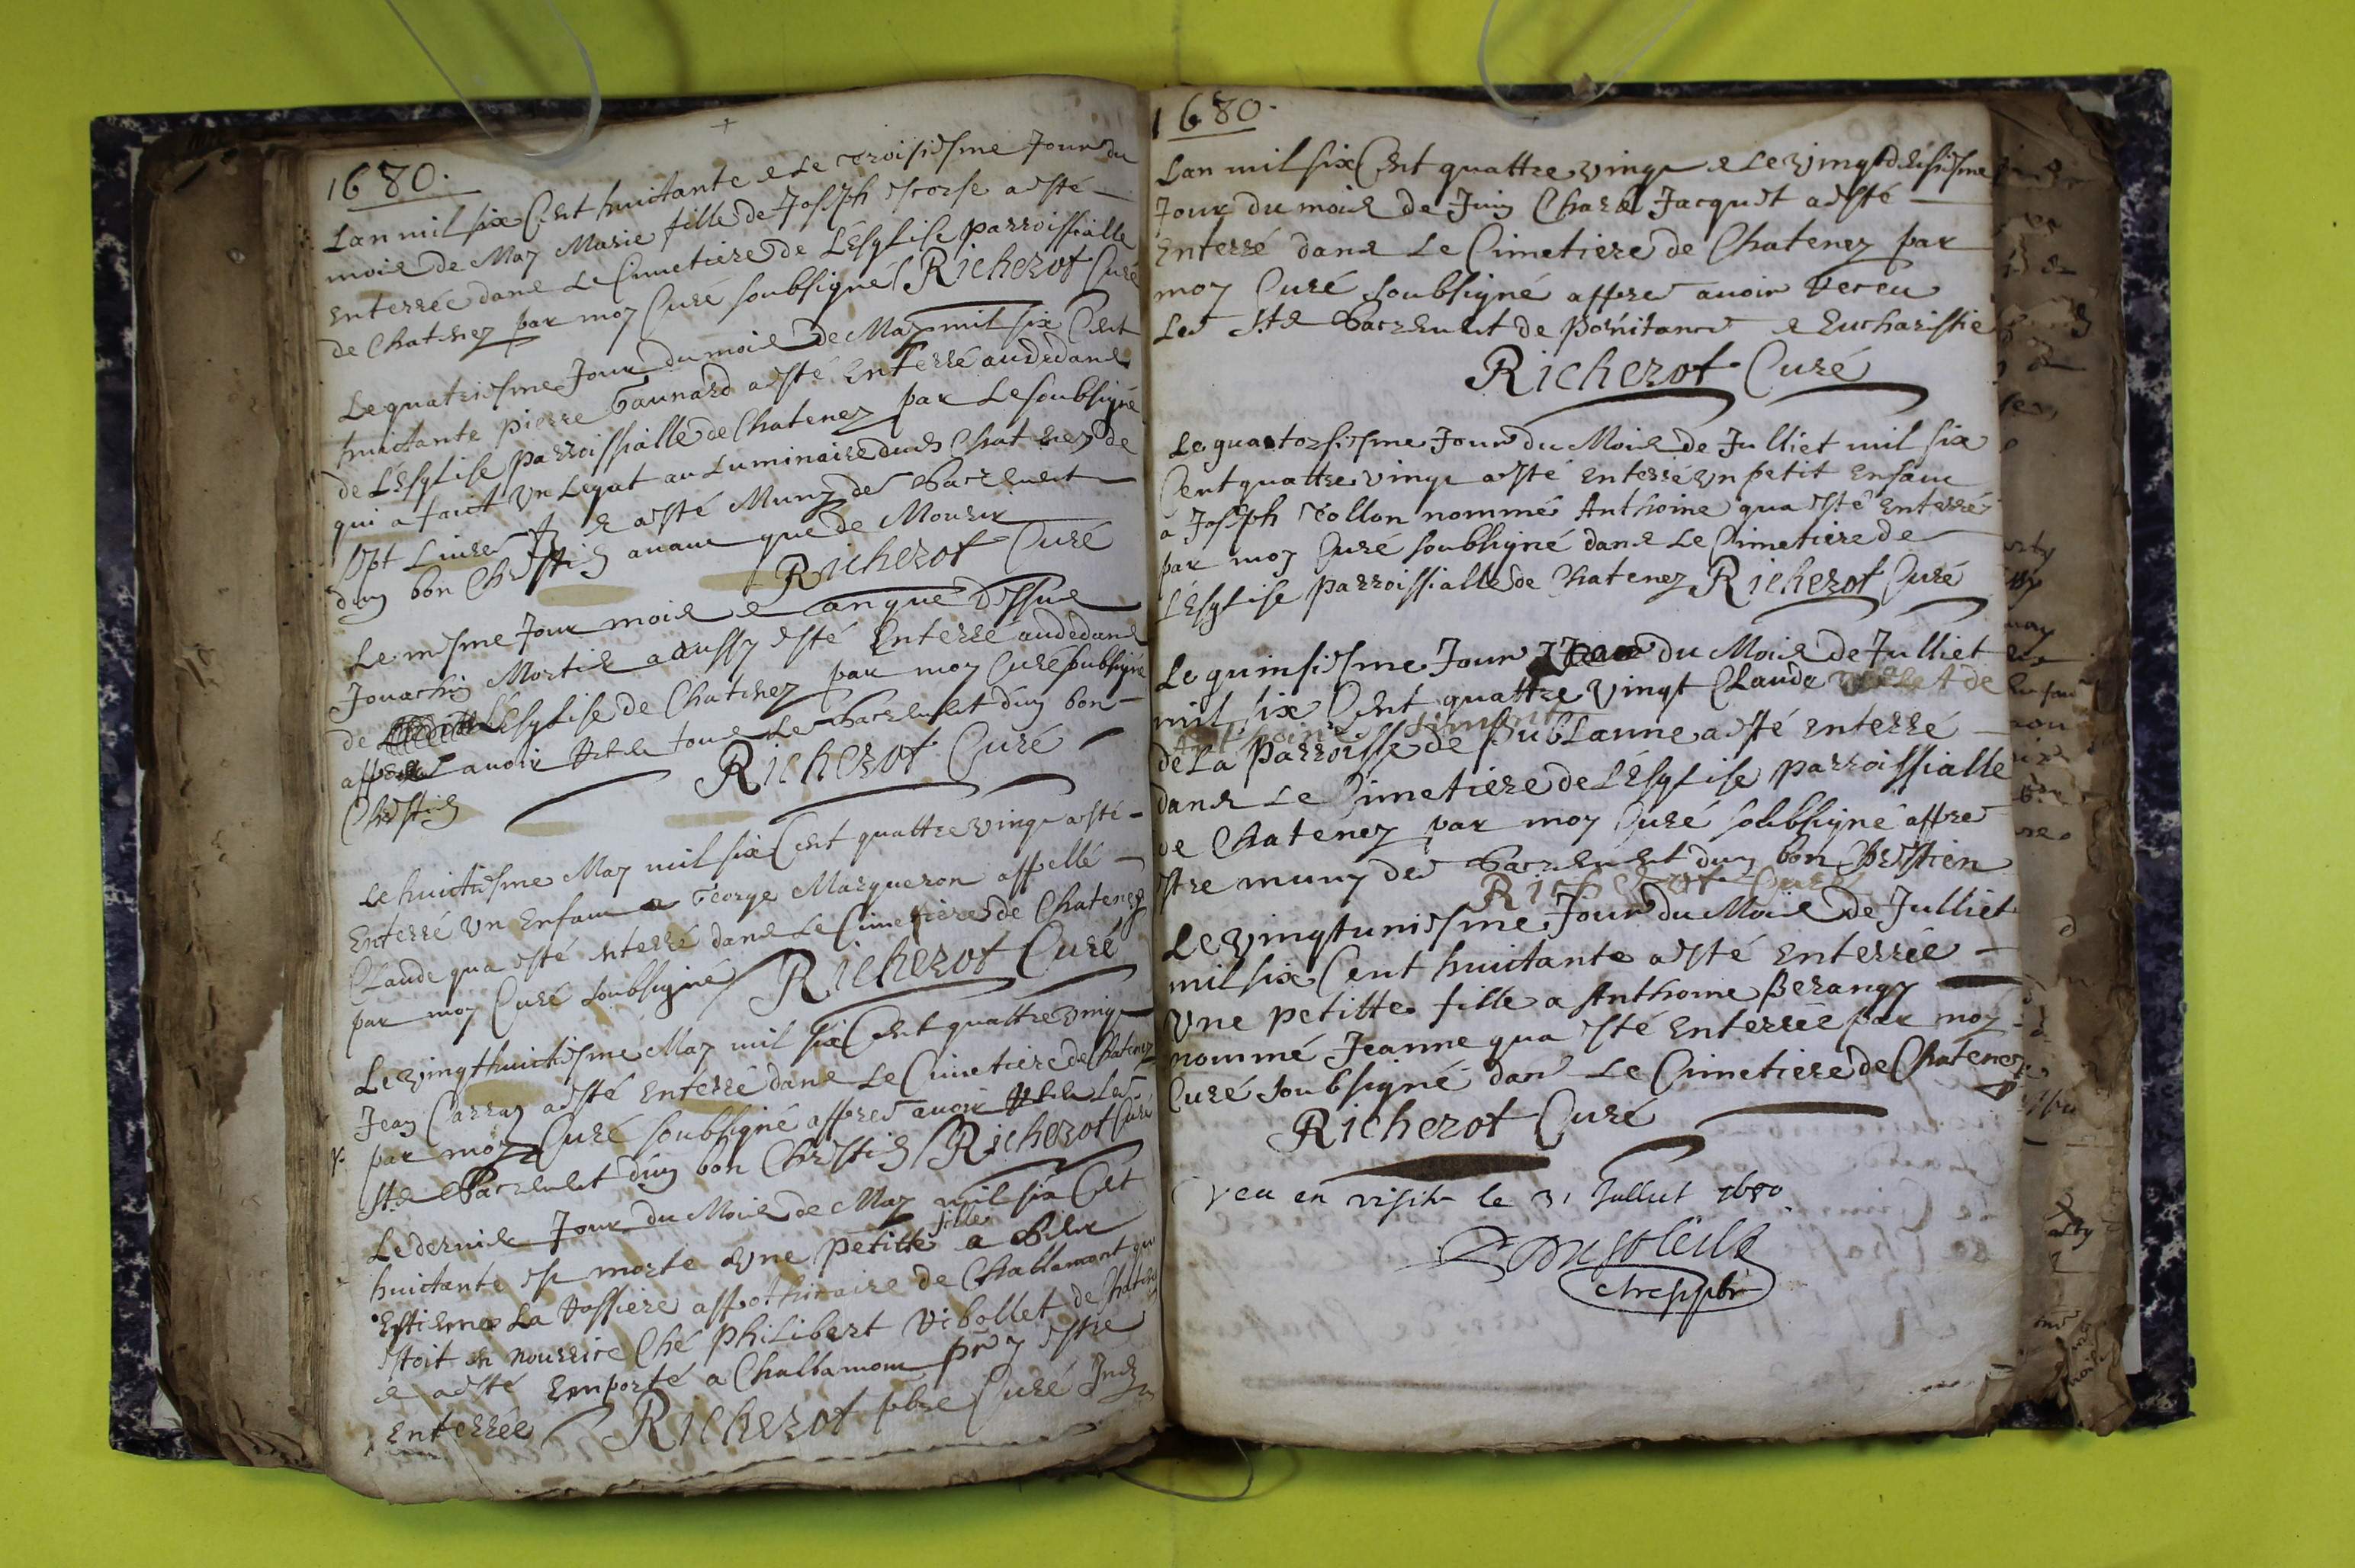 1680.
Lan mil six Cent huictante e Le troisiesme Jour du
mois de May Marie fille de Joseph escorse a esté
Enterrée dans Le Cimetiere de L'Esglise parroissialle
de Chatenez par moy Curé soubsigné Richerot Curé
Le quatriesme Jour du mois de May mil six Cent
huictante pierre aesté Enterré audedans
de L'Esglise parroissialle de Chatenez par Le soubsigné
qui a faict Un Legat au Luminaire dud Chatenez de
sept Liures e aesté Muny des Sacrement
duy bon Chrestien auant que de Mourir
Richerot Curé
Le mesme Jour mois e an que dessus
Jouachin Mortier a aussy esté Enterré audedans
de L'Esglise de Chatenez par moy Curé soubsigné
appres auoir tous Les Sacrement duy bon
Chrestien Richerot Curé
Le huictiesme May mil six Cent quattre vingt aesté
Enterré Un Enfant a George Marqueron appellé
Claude qua esté enterré dans Le Cimetiere de Chatenez
par moy Curé soubsigné Richerot Curé
Le vingthuictiesme May mil six Cent quattre vingt
Jean Carraz aesté Enterré dans Le Cimetiere de Chatenez
par moy Curé soubsigné appres auoir Les
Sts Sacrement duy bon Chrestien Richerot Curé
Le dernier Jour du Mois de May mil six Cent
huictante est morte Une petitte fille a Sieur
Estienne La appothicaire de Challamont qui
estoit en nourrice Ché philibert Vibollet de Chatenez
e aesté Emporté a Challamont pry estre
Enterrée Richerot pbre Curé Ind
1680.
Lan mil six Cent quattre vingt e Le vingtdeusiesme
Jour du mois de Juin Charle Jacquet aesté
Enterré dans Le Cimetiere de Chatenez par
moy Curé soubsigné appres auoir Receu
Les Sts Sacrement de Poenitance e Eucharistie
Richerot Curé
Le quatorsiesme Jour du Mois de Julliet mil six
Cent quattre vingt aesté Enterré Un petit Enfant
a Joseph Follon nommé Anthoine qua esté Enterré
par moy Curé soubsigné dans Le Cimetiere de
L'Esglise parroissialle de Chatenez Richerot Curé
Le quinsiesme Jour du Mois de Julliet
mil six Cent quattre vingt Claude de
de La parroisse de Sublanne aesté Enterré
dans Le Cimetiere de L'Esglise parroissialle
de Chatenez par moy Curé soubsigné appres
estre muny des Sacrement duy bon Chrestien
Richerot Curé
Le vingtuniesme Jour du Mois de Julliet
mil six Cent huictante aesté Enterrée
Une petitte fille a Anthoine Berangy
nommé Jeanne qua esté Enterrée par moy
Curé soubsigné dans Le Cimetiere de Chatenez
Richerot Curé
veu en visite le 31 Jullet 1680
Dusoleild